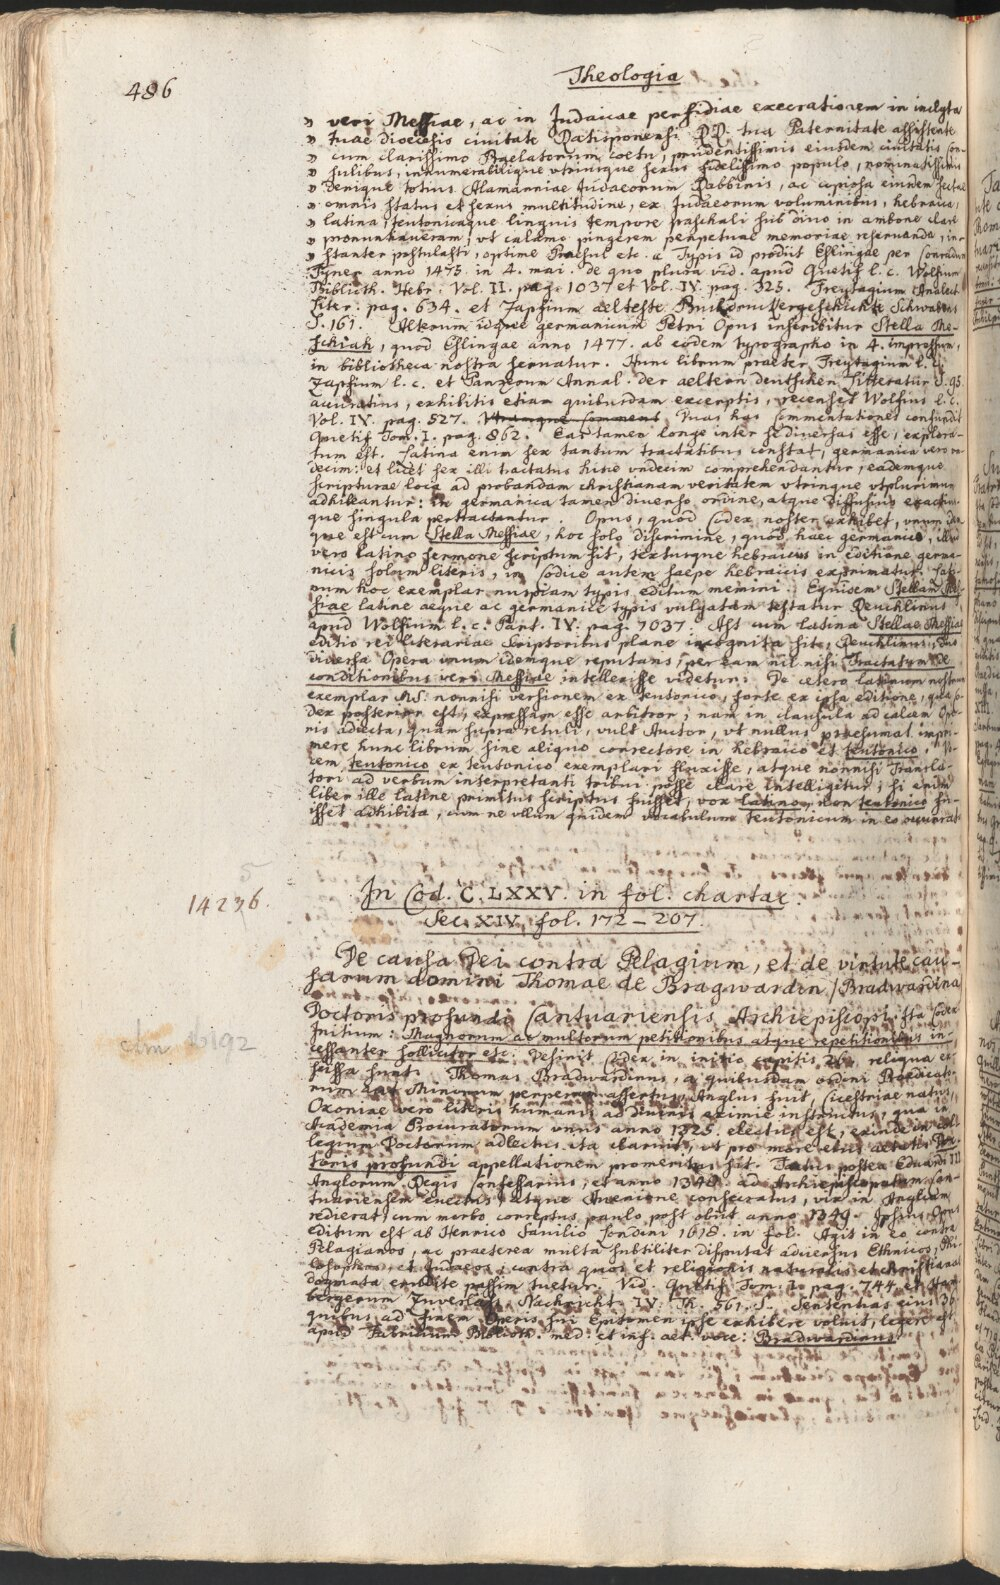 486
Theologia
" veri Messiae, ac in Judaicae perfidiae execrationem in inclyta
" tuae dioecesis civitate Ratisponensi RD. tua Paternitate assistente
" cum clarissimo Praelatorum coetu, prudentissimis eiusdem civitatis Con-
" sulibus, innumerabilique utriusque sexus fidelissimo populo, nominatissimis
" denique totius Alamanniae Judaeorum Rabbinis, ac copiosa eiusdem sectae
" omnis status et sexus multitudine, ex Judaeorum voluminibus, hebraica,
" latina, teutonicaque linguis tempore paschali sub divo in ambone clare
" pronuntiaveram, ut calamo pingerem perpetuae memoriae reservanda, in-
" stanter postulasti, optime Praesul etc. a Typis id prodiit Eslingae per Conradum
Fyner anno 1475 in 4. mai. de quo plura vid. apud Quetif l. c. Wolfium
Biblioth. Hebr. Vol. II. pag. 1037 et Vol. IV. pag. 525. Freytagium Analect.
liter. pag. 634. et Zapfium aelteste Buchdruckergeschichte Schwabens
S. 161. Alterum idque germanicum Petri Opus inscribitur Stella Me-
schiah, quod Eslingae anno 1477. ab eodem typographo in 4. impressum,
in bibliotheca nostra servatur. Hunc librum praeter Freytagium l. c.
Zapfium l. c. et Panzerum Annal. der aeltern deutschen Litteratur S. 95.
accuratius, exhibitis etiam quibusdam excerptis, recenset Wolfius l. c.
Vol. IV. pag. 527. Utramque Comment Duas has Commentationes confundit
Quetif Tom. I. pag. 862. Eas tamen longe inter se diversas esse, explora-
tum est. Latina enim sex tantum tractatibus constat, germanica vero un-
decim: et licet sex illi tractatus hisce undecim comprehendantur, eademque
scripturae loca ad probandam christianam veritatem utrinque utplurimum
adhibeantur: in germanica tamen diverso ordine, atque diffusius exactius-
que singula pertractantur. Opus, quod Codex noster exhibet, unum idem-
que est cum Stella Messiae, hoc solo discrimine, quod haec germanico, illud
vero latino sermone scriptum sit, textusque hebraicus in editione germa-
nicis solum literis, in Codice autem saepe hebraicis exprimatur. Lati-
num hoc exemplar nuspiam typis editum memini. Equidem Stellam Mes-
siae latine aeque ac germanice typis vulgatam testatur Reuchlinus
apud Wolfium l. c. Part. IV. pag. 1037. Ast cum latina Stellae Messiae
editio rei literariae Scriptoribus plane incognita sit, Reuchlinus, duo
diversa Opera unum idemque reputans, per eam nil nisi Tractatum de
conditionibus veri Messiae intellexisse videtur. De cetero latinum nostrum
exemplar MS. nonnisi versionem ex teutonico, forte ex ipsa editione, qua Co-
dex posterior est, expressam esse arbitror; nam in clausula ad calcem Ope-
ris adiecta, quam supra retuli, vult Auctor, ut nullus praesumat impri-
mere hunc librum sine aliquo correctore in hebraico et teutonico. Vo-
cem teutonico ex teutonico exemplari fluxisse, atque nonnisi Transla-
tori ad verbum interpretanti tribui posse clare intelligitur; si enim
liber ille latine primitus scriptus fuisset, vox latino, non teutonico fu-
isset adhibita, cum ne ullum quidem vocabulum teutonicum in eo occurrat.
5
14236.
In Cod. C.LXXV. in fol. chartac.
Sec. XIV. fol. 172 – 207.
De causa Dei contra Pelagium, et de virtute cau-
sarum domini Thomae de Bragwardin, (Bradwardina
Doctoris profundi Cantuariensis Archiepiscopi. Ista Codex
clm 16192
Initium: Magnorum ac multorum petitionibus atque repetitionibus in-
cessanter sollicitor etc. Desinit Codex in initio capitis 26, reliqua ex-
scissa sunt. Thomas Bradwardinus, a quibusdam ordini Praedicato-
rum aut Minorum perperam assertus, Anglus fuit, Cicestriae natus,
Oxoniae vero literis humanis ac divinis eximie instructus, qua in
Academia Procuratorum unus anno 1325. electus est, exinde in col-
legium Doctorum adlectus ita claruit, ut pro more eius aetatis Doc-
toris profundi appellationem promeritus sit. Factus postea Eduardi III
Anglorum Regis Confessarius, et anno 1348. ad Archiepiscopatum Can-
tuariensem evectus, atque Avenione consecratus, vix in Angliam
redierat, cum morbo correptus paulo post obiit anno 1349. Ipsius Opus
editum est ab Henrico Savilio Londini 1618. in fol. Agit in eo contra
Pelagianos, ac praeterea multa subtiliter disputat adversus Ethnicos, Phi-
losophos, et Judaeos, contra quos et religionis naturalis et christianae
dogmata erudite passim tuetur. Vid. Quetif Tom. I. pag. 744. et Ham-
bergerum Zuverläß. Nachricht. IV. Th. 561. S. Sententias eius 36
quibus ad finem Operis sui Epitomen ipse exhibere voluit, legere est
apud Fabricium Biblioth. med. et inf. aet. voce: Bradwardinus.